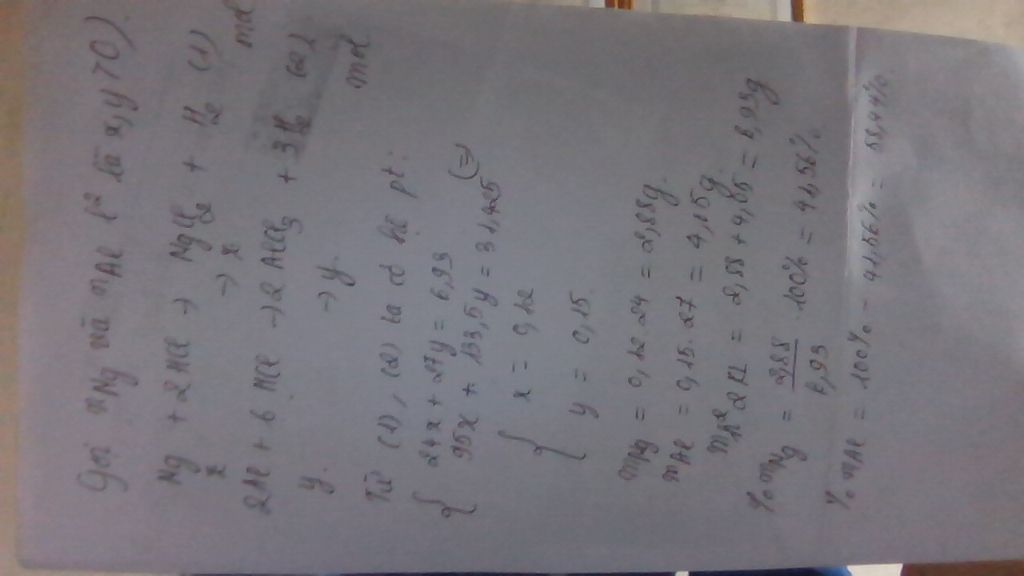 Gọi nMg và nAl lần lượt là x, y > 0)
Mg + 2HCl → MgCl2 + H2 (1)
x → x mol
2Al + 6HCl → 2AlCl3 + 3H2 (2)
y → y mol
Từ (1), (2) ta có hệ pt:
{ 24x + 27y = 6,93
95x + 133,5y = 31,425 (=)
{ x = 0,12
y = 0,15
mMg = 0,12.24 = 2,88g.
mAl = 0,15.27 = 4,15g
= 2,88 + 4,05 = 6,93g
%mMg = 2,88/6,93 .100% = 41,56%
%mAl = 100% - 41,56% = 58,44%.